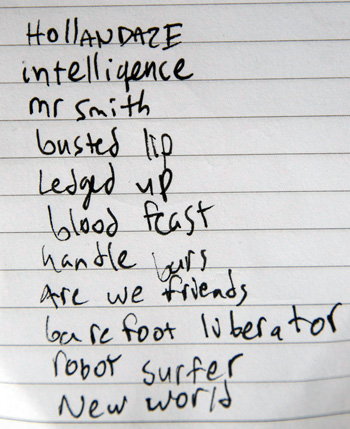 HOllANDAZE
intelligence
mr smith
busted lip
Ledged up
blood feast
handle bars
Are we friends
barefoot liberator
robot surfer
New world